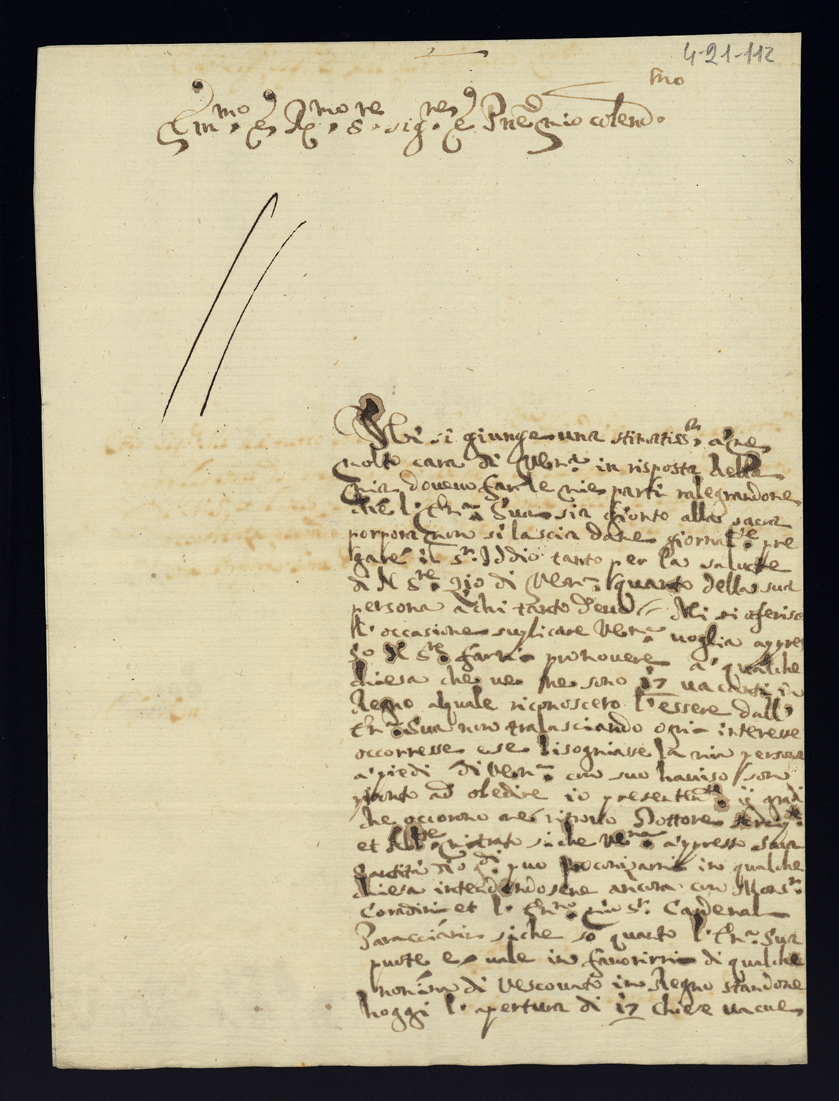 4-21-112
Em.mo e R.mo re S. sig.re e Pne mio colend.mo
Mi si giunge una stimatiss.a a me
molto cara di Vem.a in risposta della
mia dovevo farle mie parti ralegrandone
che l'Em.a Sua sia gionto alla sacra
porpora non si lascia dame giornal.te pre
gare il S.r Iddio tanto per la salute
di N S.re Pio di Vem.a quanto della sua
persona a chi tanto devo Mi si oferisce
l'occasione suplicare Vem.a voglia appres
so N S.re farmi promovere a qualche
chiesa che ve ne sono 17 vacanti in
Regno alquale riconoscero l'essere dall'
Em.a Sua non tralasciando ogni interesse
occorresse e se bisogniasse la mia persona
a piedi di Vem.a con suo haviso son
pronto ad obedire io presentem.te ij gradi
che occorono mi ritrovo Dottore
et mitrato siche Ve.ma appresso Sua
Santità può in qualche
chiesa intendendosene ancora con Mons.r
Coradini et l'Em.mo mio S.r Cardenal
Paracciani siche so quanto l'Em.a Sua
puote e vale in favorirmi di qualche
nomina di Vescovato in Regno standone
hoggi l'apertura di 17 chiese vacue